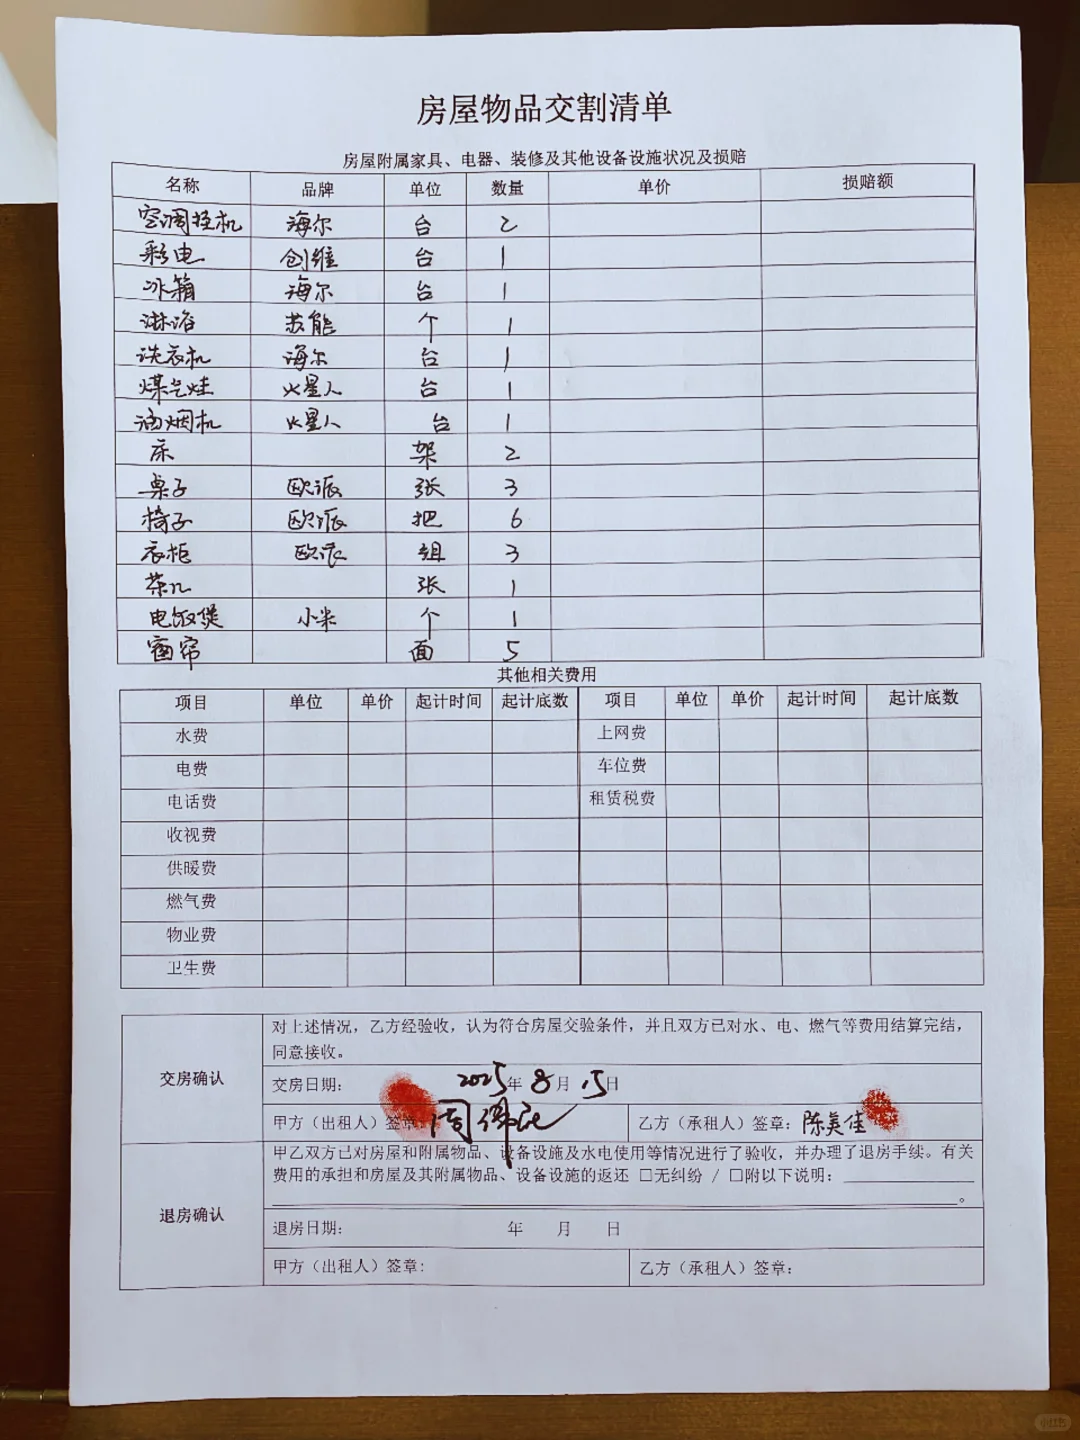 房屋物品交割清单
房屋附属家具、电器、装修及其他设备设施状况及损赔
名称 品牌 单位 数量 单价 损赔额
空调挂机 海尔 台 2
彩电 创维 台 1
冰箱 海尔 台 1
淋浴 个 1
洗衣机 海尔 台 1
煤气灶 火星人 台 1
油烟机 火星人 台 1
床 架 2
桌子 欧派 张 3
椅子 欧派 把 6
衣柜 欧派 组 3
茶几 张 1
电饭煲 小米 个 1
窗帘 面 5
其他相关费用
项目 单位 单价 起计时间 起计底数 项目 单位 单价 起计时间 起计底数
水费 上网费
电费 车位费
电话费 租赁税费
收视费
供暖费
燃气费
物业费
卫生费
交房确认
对上述情况，乙方经验收，认为符合房屋交验条件，并且双方已对水、电、燃气等费用结算完结，
同意接收。
交房日期： 2025年 8月 15日
甲方（出租人）签章： 周
乙方（承租人）签章：陈美佳
退房确认
甲乙双方已对房屋和附属物品、设备设施及水电使用等情况进行了验收，并办理了退房手续。有关
费用的承担和房屋及其附属物品、设备设施的返还 □无纠纷 / □附以下说明：
。
退房日期： 年 月 日
甲方（出租人）签章： 乙方（承租人）签章：